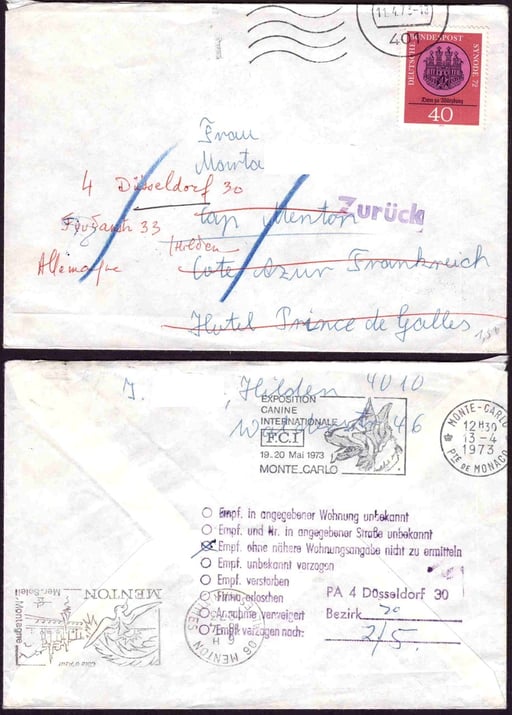 11.4.73-18
401
DEUTSCHE BUNDESPOST
SYNODE 72
Dom zu Würzburg
40
Frau
Marta
4 Düsseldorf 30
33
Allemagne
Zurück
Cap Menton
Hilden
Cote Azur Frankreich
Hotel Prince de Galles
1,50
J. Hilden 4010
46
EXPOSITION
CANINE
INTERNATIONALE
F.C.I
19.20 Mai 1973
MONTE.CARLO
MONTE-CARLO
12H30
13-4
1973
PTE DE MONACO
Empf. in angegebener Wohnung unbekannt
Empf. und Nr. in angegebener Straße unbekannt
Empf. ohne nähere Wohnungsangabe nicht zu ermitteln
Empf. unbekannt verzogen
Empf. verstorben
Firma erloschen
Annahme verweigert
Empf. verzogen nach:
PA 4 Düsseldorf 30
Bezirk 20
2/5.
MENTON
Mer.Soleil
Montagne
Côte d'Azur
06 MENTON